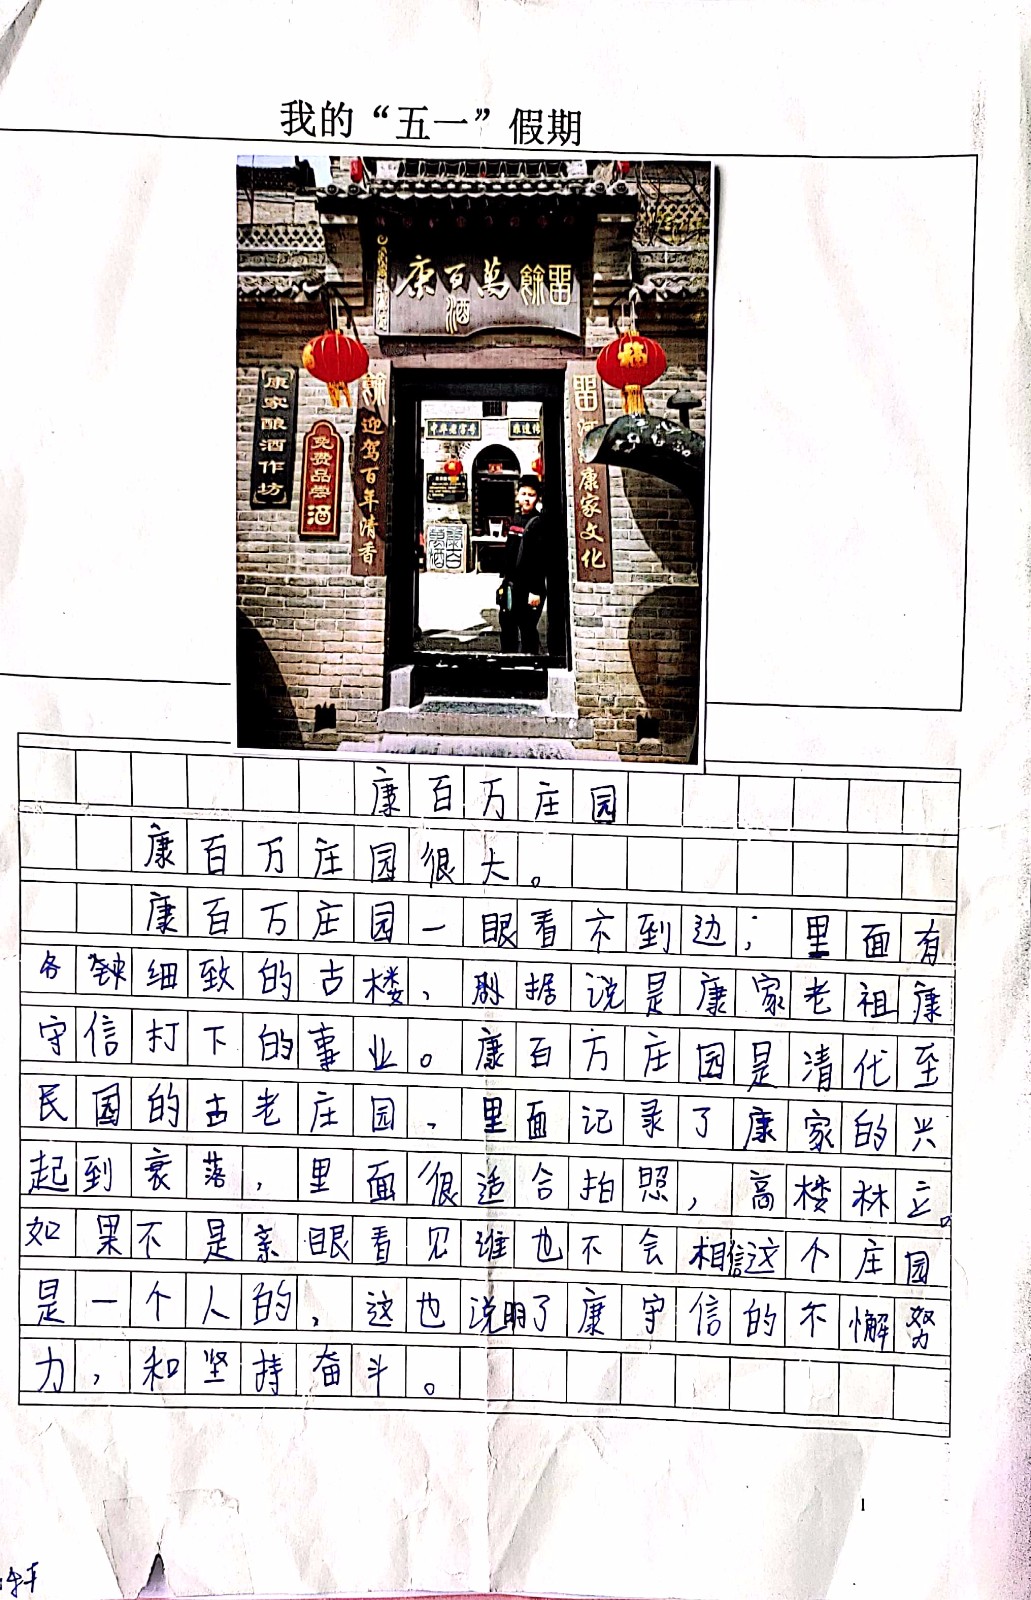 我的“五一”假期
康百萬餘畱
酒
康家酿酒作坊
免费品尝酒
餘迎驾百年清香
畱
康家文化
中华老字号
康百萬酒
康百万庄园
康百万庄园很大。
康百万庄园一眼看不到边；里面有
各种细致的古楼，据说是康家老祖康
守信打下的事业。康百万庄园是清代至
民国的古老庄园，里面记录了康家的兴
起到衰落，里面很适合拍照，高楼林立。
如果不是亲眼看见谁也不会相信这个庄园
是一个人的，这也说明了康守信的不懈努
力，和坚持奋斗。
1